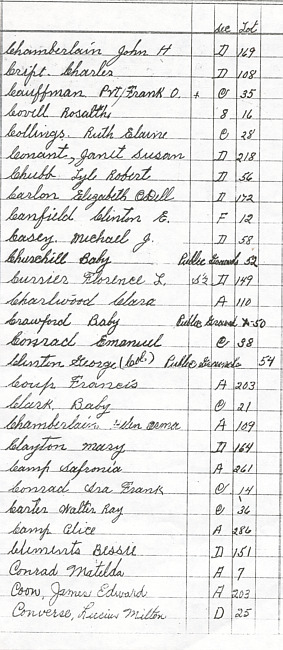 Sec Lot
Chamberlain John H D 169
Cript. Charles D 108
Cauffman Pvt/Frank O. + C 35
Covill Rosaltha 8 16
Collings. Ruth Elaine C 28
Conant, Janit Susan D 218
Chubb Lyle Robert D 56
Carlon Elizabeth O'Dell D 172
Canfield Clinton E. F 12
Casey. Michael J. D 58
Churchill Baby Public Ground 52
Currier Florence L, S½ D 149
Charlwood Clara A 110
Crawford Baby Public Ground A-50
Conrad Emanuel C 38
Clinton George (Col.) Public Grounds 54
Coup Francis A 203
Clark, Baby C 21
Chamberlain Ellen Orma A 109
Clayton Mary D 164
Camp Safronia A 261
Conrad Ira Frank C 14
Carter Walter Ray C 36
Camp Alice A 286
Clements Bessie D 151
Conrad Matilda A 7
Coon, James Edward A 203
Converse, Lucius Milton D 25